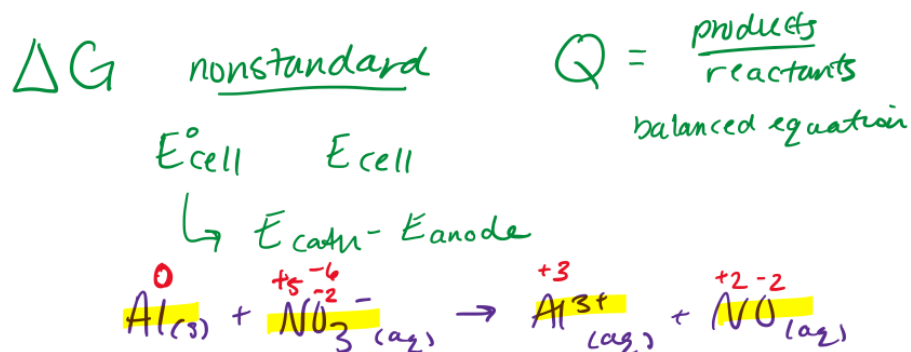 ΔG nonstandard Q = products / reactants
balanced equation
E°cell Ecell
↳ Ecath - Eanode
0 +5 -6 -2 +3 +2 -2
Al(s) + NO₃⁻(aq) → Al³⁺(aq) + NO(aq)